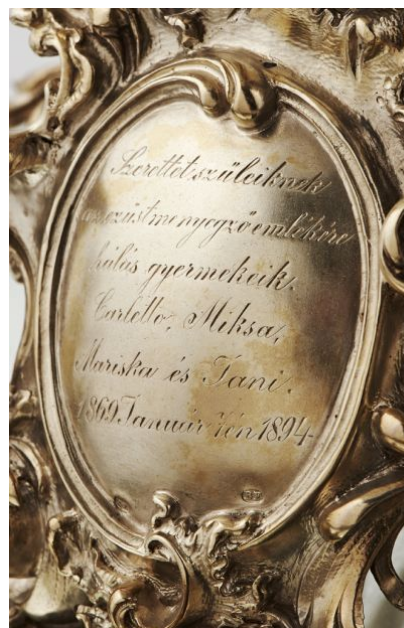 Szerettet szüleiknek
az ezüstmenyegző emlékére
hálás gyermekeik.
Carletto, Miksa,
Mariska és Jani.
1869. Január én 1894